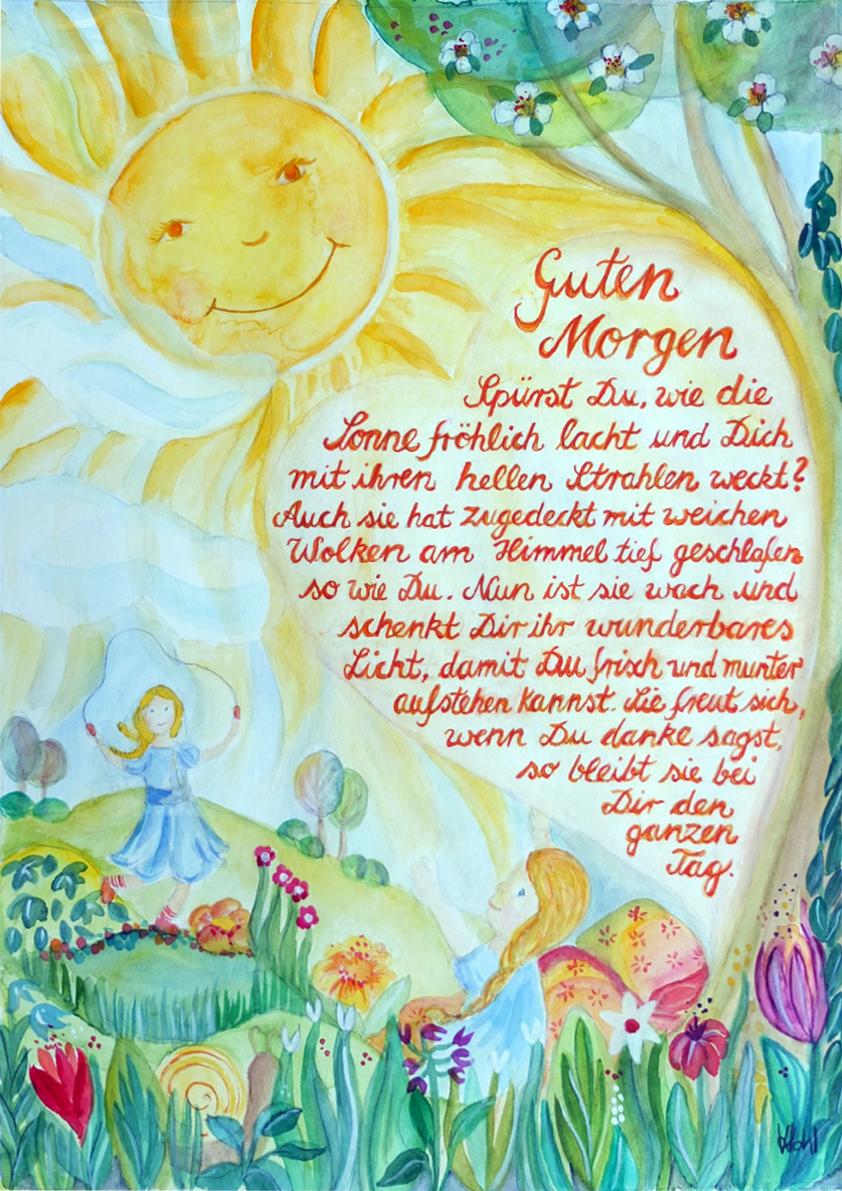 Guten
Morgen
Spürst Du, wie die
Sonne fröhlich lacht und Dich
mit ihren hellen Strahlen weckt?
Auch sie hat zugedeckt mit weichen
Wolken am Himmel tief geschlafen
so wie Du. Nun ist sie wach und
schenkt Dir ihr wunderbares
Licht, damit Du frisch und munter
aufstehen kannst. Sie freut sich,
wenn Du danke sagst,
so bleibt sie bei
Dir den
ganzen
Tag.